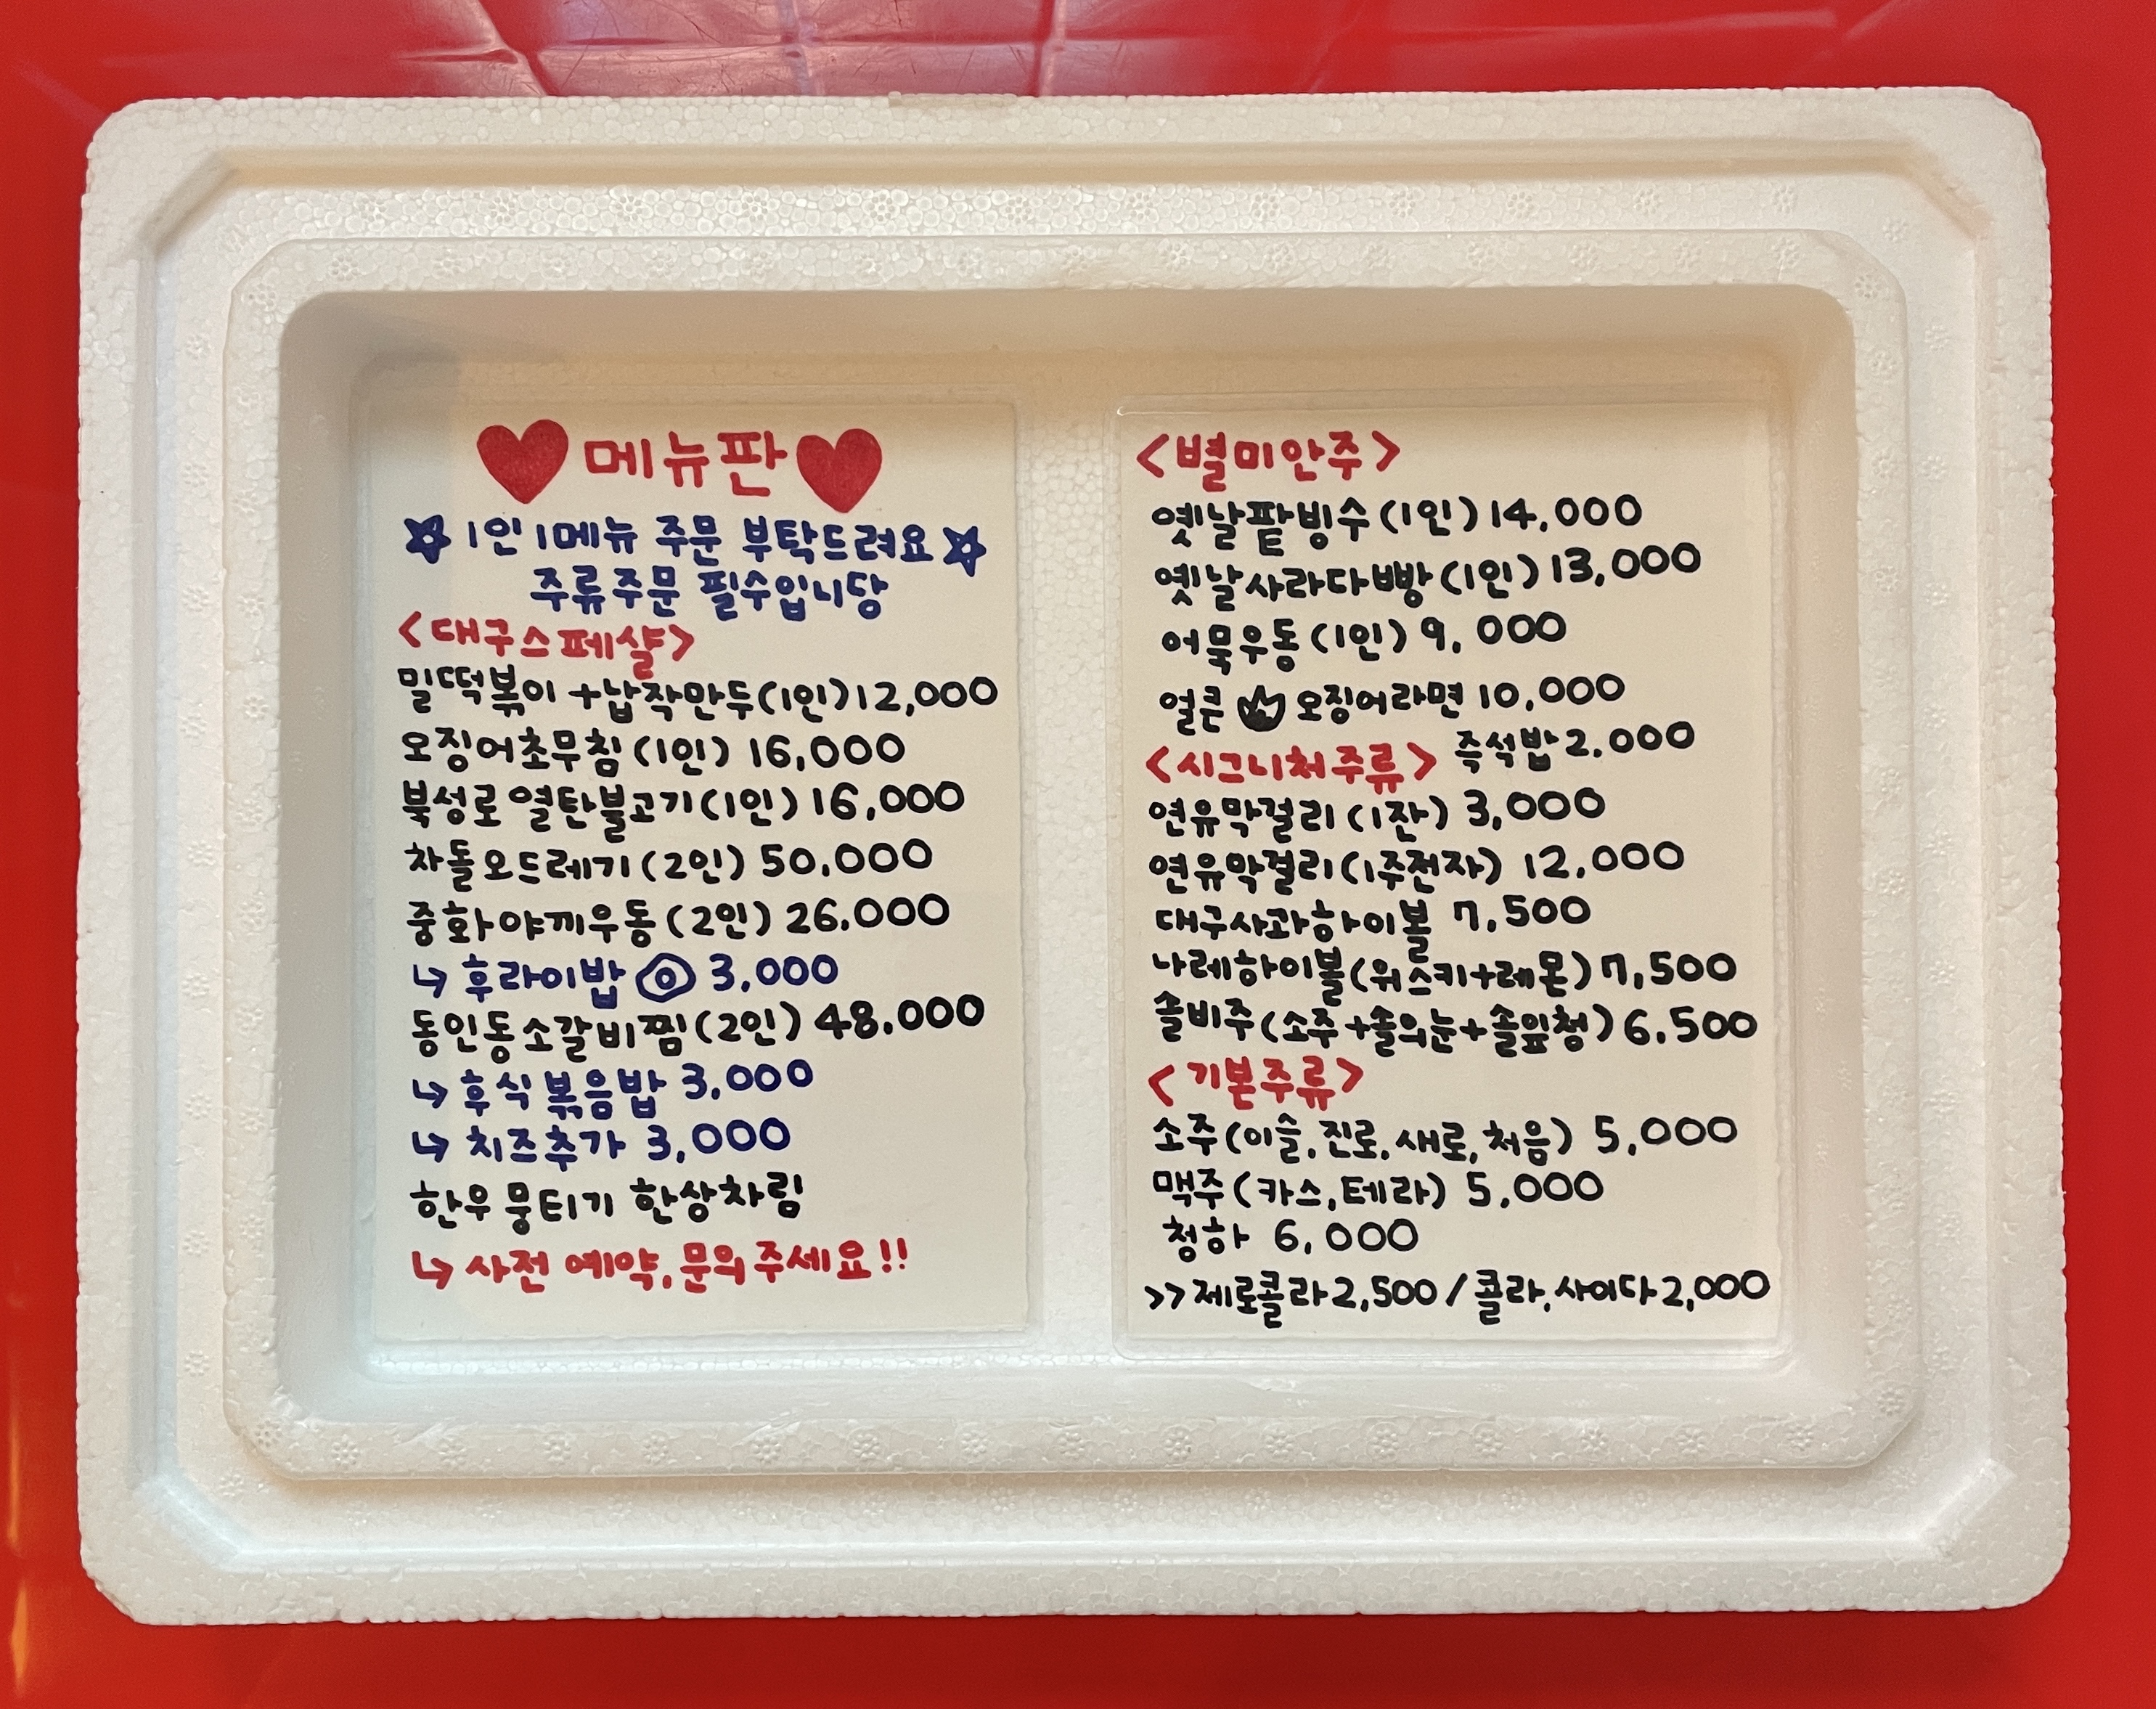 메뉴판
1인 1메뉴 주문 부탁드려요
주류주문 필수입니당
<대구스페샬>
밀떡볶이+납작만두(1인)12,000
오징어초무침(1인) 16,000
북성로 열탄불고기(1인) 16,000
차돌오드레기(2인) 50,000
중화야끼우동(2인) 26,000
↳ 후라이밥 3,000
동인동소갈비찜(2인) 48,000
↳ 후식볶음밥 3,000
↳ 치즈추가 3,000
한우뭉티기 한상차림
↳ 사전 예약,문의주세요!!
<별미안주>
옛날팥빙수(1인) 14,000
옛날사라다빵(1인) 13,000
어묵우동(1인) 9,000
얼큰 오징어라면 10,000
즉석밥 2,000
<시그니처주류>
연유막걸리(1잔) 3,000
연유막걸리(1주전자) 12,000
대구사과하이볼 7,500
나레하이볼(위스키+레몬) 7,500
솔비주(소주+솔의눈+솔잎청) 6,500
<기본주류>
소주(이슬,진로,새로,처음) 5,000
맥주(카스,테라) 5,000
청하 6,000
>> 제로콜라2,500/콜라,사이다2,000